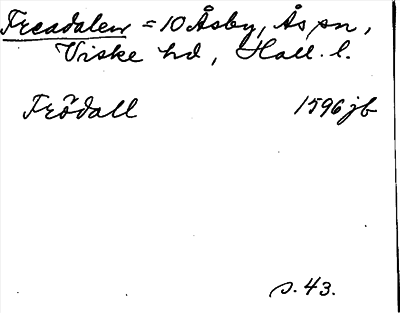 Treadalen = 10 Åsby, Ås sn,
Viske hd, Hall. l.
Trödall 1596 jb
s. 43.